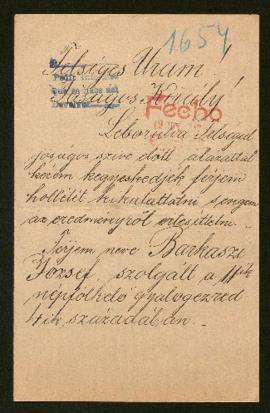 1654
Felséges Uram!
Felségos Király!
Fecho
Leborulva Felséged
jóságos szive előtt alázattal
kérem kegyeskedjék férjem
hollétét kikutattatni s engem
az eredményről értesittetni.
Férjem neve Barkaszi
József, szolgált a 11ik
népfölkelő gyalogezred
4ik századában.